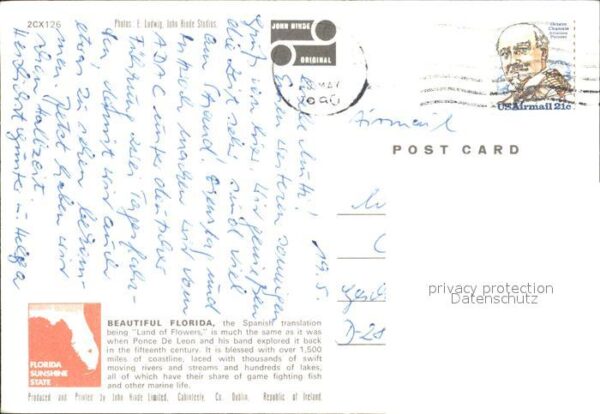 2CX126
Photos: E. Ludwig, John Hinde Studios.
JOHN HINDE
ORIGINAL
MAY
1990
Octave Chanute
Aviation Pioneer
USAirmail 21c
Airmail
POST CARD
19.5.
Liebe Mutti!
Einen weiteren sonnigen
Gruß von hier. Wir genießen
die Zeit sehr, sind viel
am Strand. Dienstag und
Mittwoch machen wir vom
ADAC unter deutscher
Führung zwei Tagesfahr-
ten, damit wir auch
etwas zu sehen bekom-
men. Jetzt haben wir
schon Halbzeit.
Herzlichst Günter u. Helga
D-28
privacy protection
Datenschutz
FLORIDA
SUNSHINE
STATE
BEAUTIFUL FLORIDA, the Spanish translation
being "Land of Flowers," is much the same as it was
when Ponce De Leon and his band explored it back
in the fifteenth century. It is blessed with over 1,500
miles of coastline, laced with thousands of swift
moving rivers and streams and hundreds of lakes,
all of which have their share of game fighting fish
and other marine life.
Produced and Printed by John Hinde Limited, Cabinteely, Co. Dublin, Republic of Ireland.